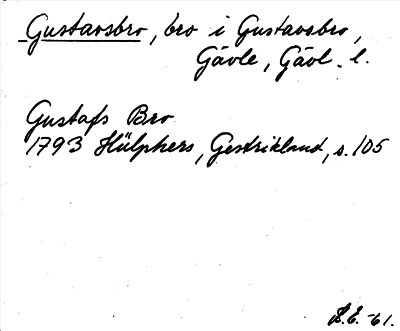 Gustavsbro, bro i Gustavsbro,
Gävle, Gävl. l.
Gustafs Bro
1793 Hülphers, Gestrikland, s. 105
R.E. -61.